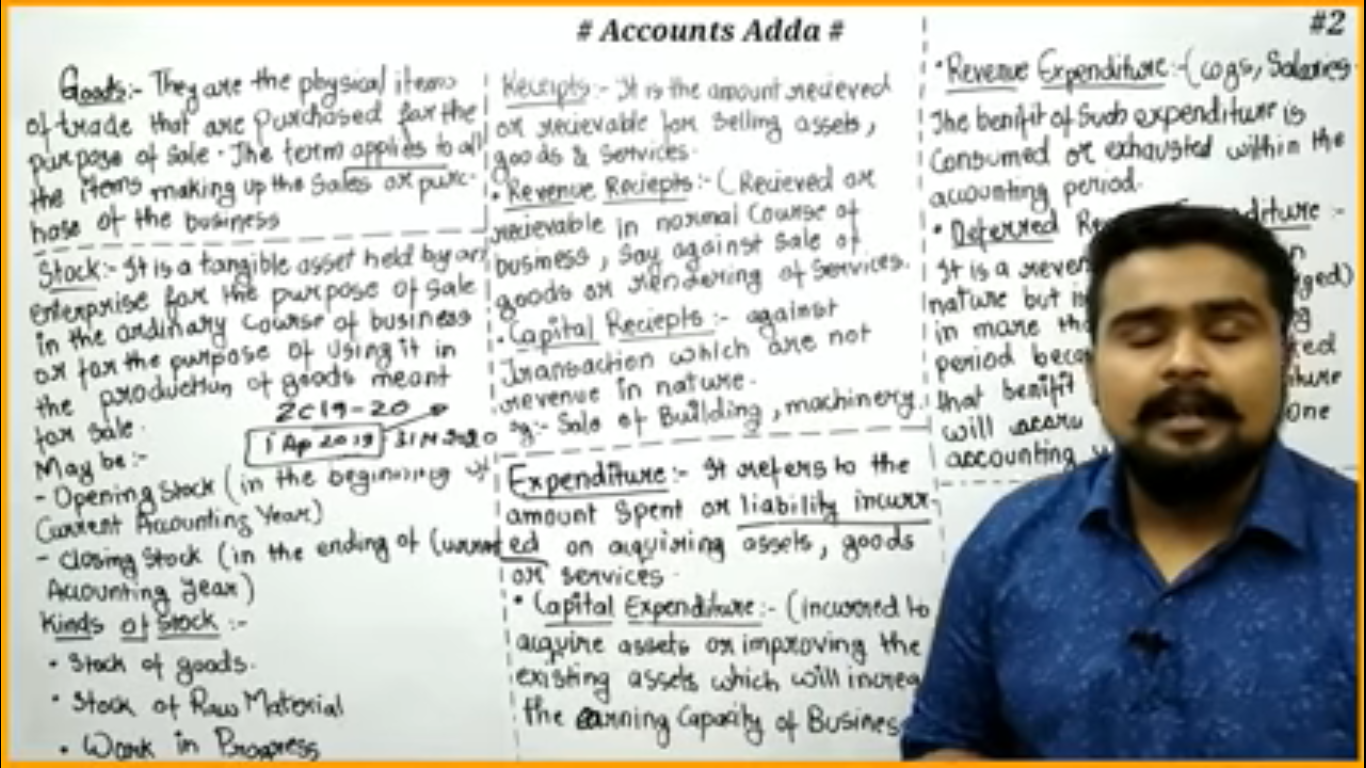 # Accounts Adda #
#2
Goods:- They are the physical items
of trade that are purchased for the
purpose of sale. The term applies to all
the items making up the sales or purc-
hase of the business
Stock:- It is a tangible asset held by an
enterprise for the purpose of sale
in the ordinary course of business
or for the purpose of using it in
the production of goods meant
for sale.
2019-20
1 Ap 2019 31 M 2020
May be:-
- Opening Stock (in the beginning of
Current Accounting Year)
- Closing Stock (in the ending of Current
Accounting Year)
Kinds of Stock:-
• Stock of goods.
• Stock of Raw Material
• Work in Progress
Receipts:- It is the amount recieved
or recievable for selling assets,
goods & Services.
• Revenue Reciepts:- (Recieved or
recievable in normal Course of
business, say against sale of
goods or rendering of Services.
• Capital Reciepts:- against
Transaction which are not
revenue in nature.
eg:- Sale of Building, machinery.
Expenditure:- It refers to the
amount spent or liability incurr-
ed on acquiring assets, goods
or services.
• Capital Expenditure:- (incurred to
acquire assets or improving the
existing assets which will increa
the earning Capacity of Business
• Revenue Expenditure:- (cogs, Salaries
The benifit of Such expenditure is
Consumed or exhausted within the
accounting period.
• Deferred Re nditure:-
It is a reven
nature but i ged)
in more th
period beca
that benifit
will accru one
accounting